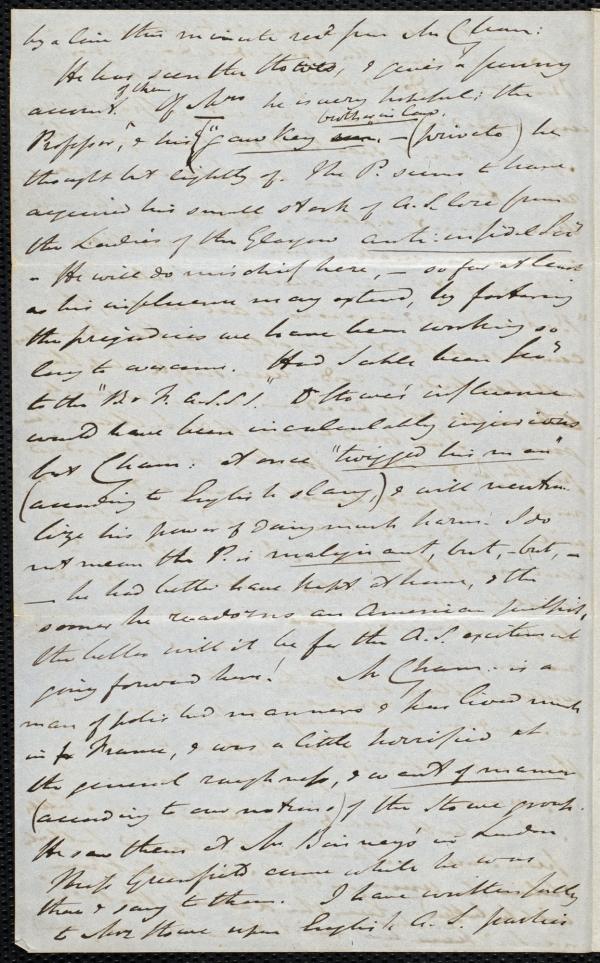 by a line this minute recd from Mr Cham:
He has seen the Stowes, & gives a funny
account of them. Of Mrs he is very hopeful; the
Professor, & his "gawkey son brother in law. — (private) he
thought but lightly of. The P. seems to have
acquired his small stock of A. S. lore from
the Ladies of the Glasgow anti-infidel Socy
- He will do mischief here, — so far at least
as his influence may extend, by fostering
the prejudices we have been working so
long to overcome. Had Sable been Secy
to the "B & F. A.S.S." D Stowe's influence
would have been incalculably injurious
but Cham: at once "twigged his man"
(according to English slang,) & will neutra-
lize his power of doing much harm. I do
not mean the P. is malignant, but, - but, -
— he had better have kept at home, & the
sooner he readorns an American pulpit,
the better will it be for the A.S. excitement
going forward here! Mr Cham: is a
man of polished manners & has lived much
in France, & was a little horrified at
the general roughness, & want of manner
(according to our notions) of the Stowe group.
He saw them at Mr Binney's in London
Miss Greenfield came while he was
there & sang to them. I have written fully
to Mrs Stowe upon English A. S. parties